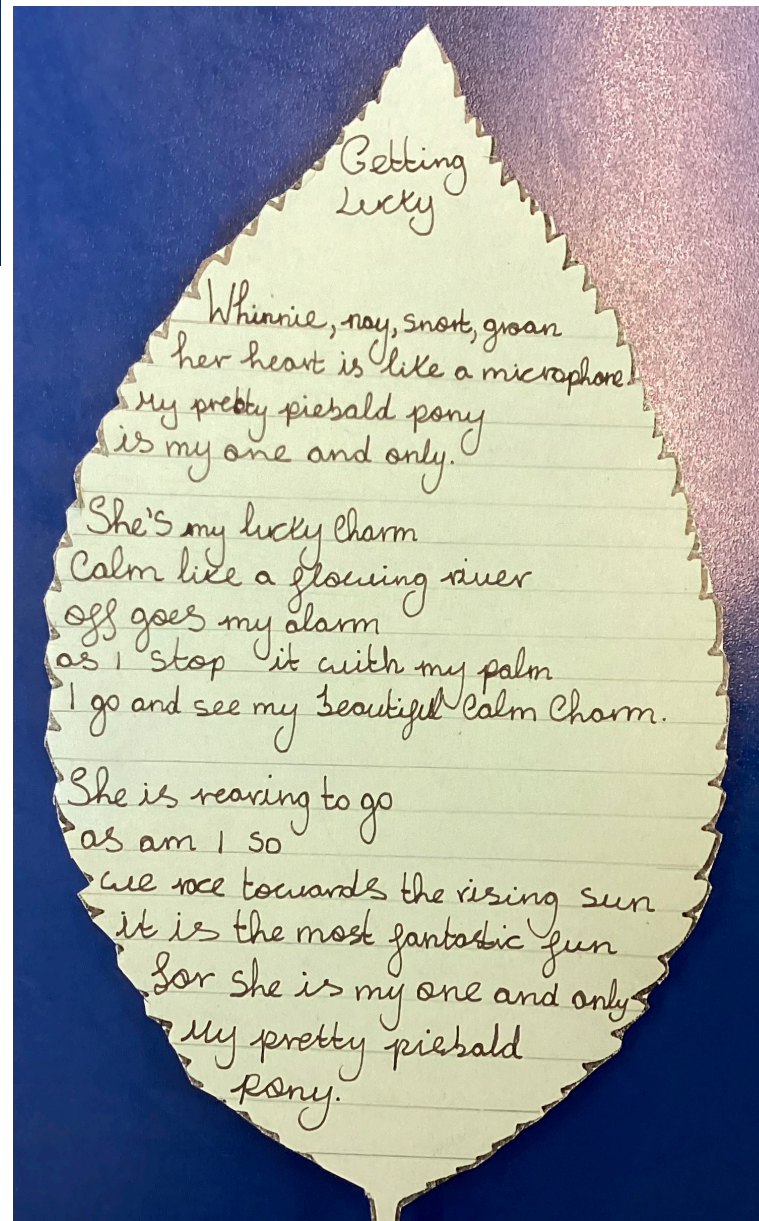 Getting
Lucky
Whinnie, nay, snort, groan
her heart is like a microphone.
My pretty piebald pony
is my one and only.
She's my lucky Charm
Calm like a flowing river
off goes my alarm
as I stop it with my palm
I go and see my beautiful Calm Charm.
She is rearing to go
as am I so
we race towards the rising sun
it is the most fantastic fun
for she is my one and only
My pretty piebald
Pony.